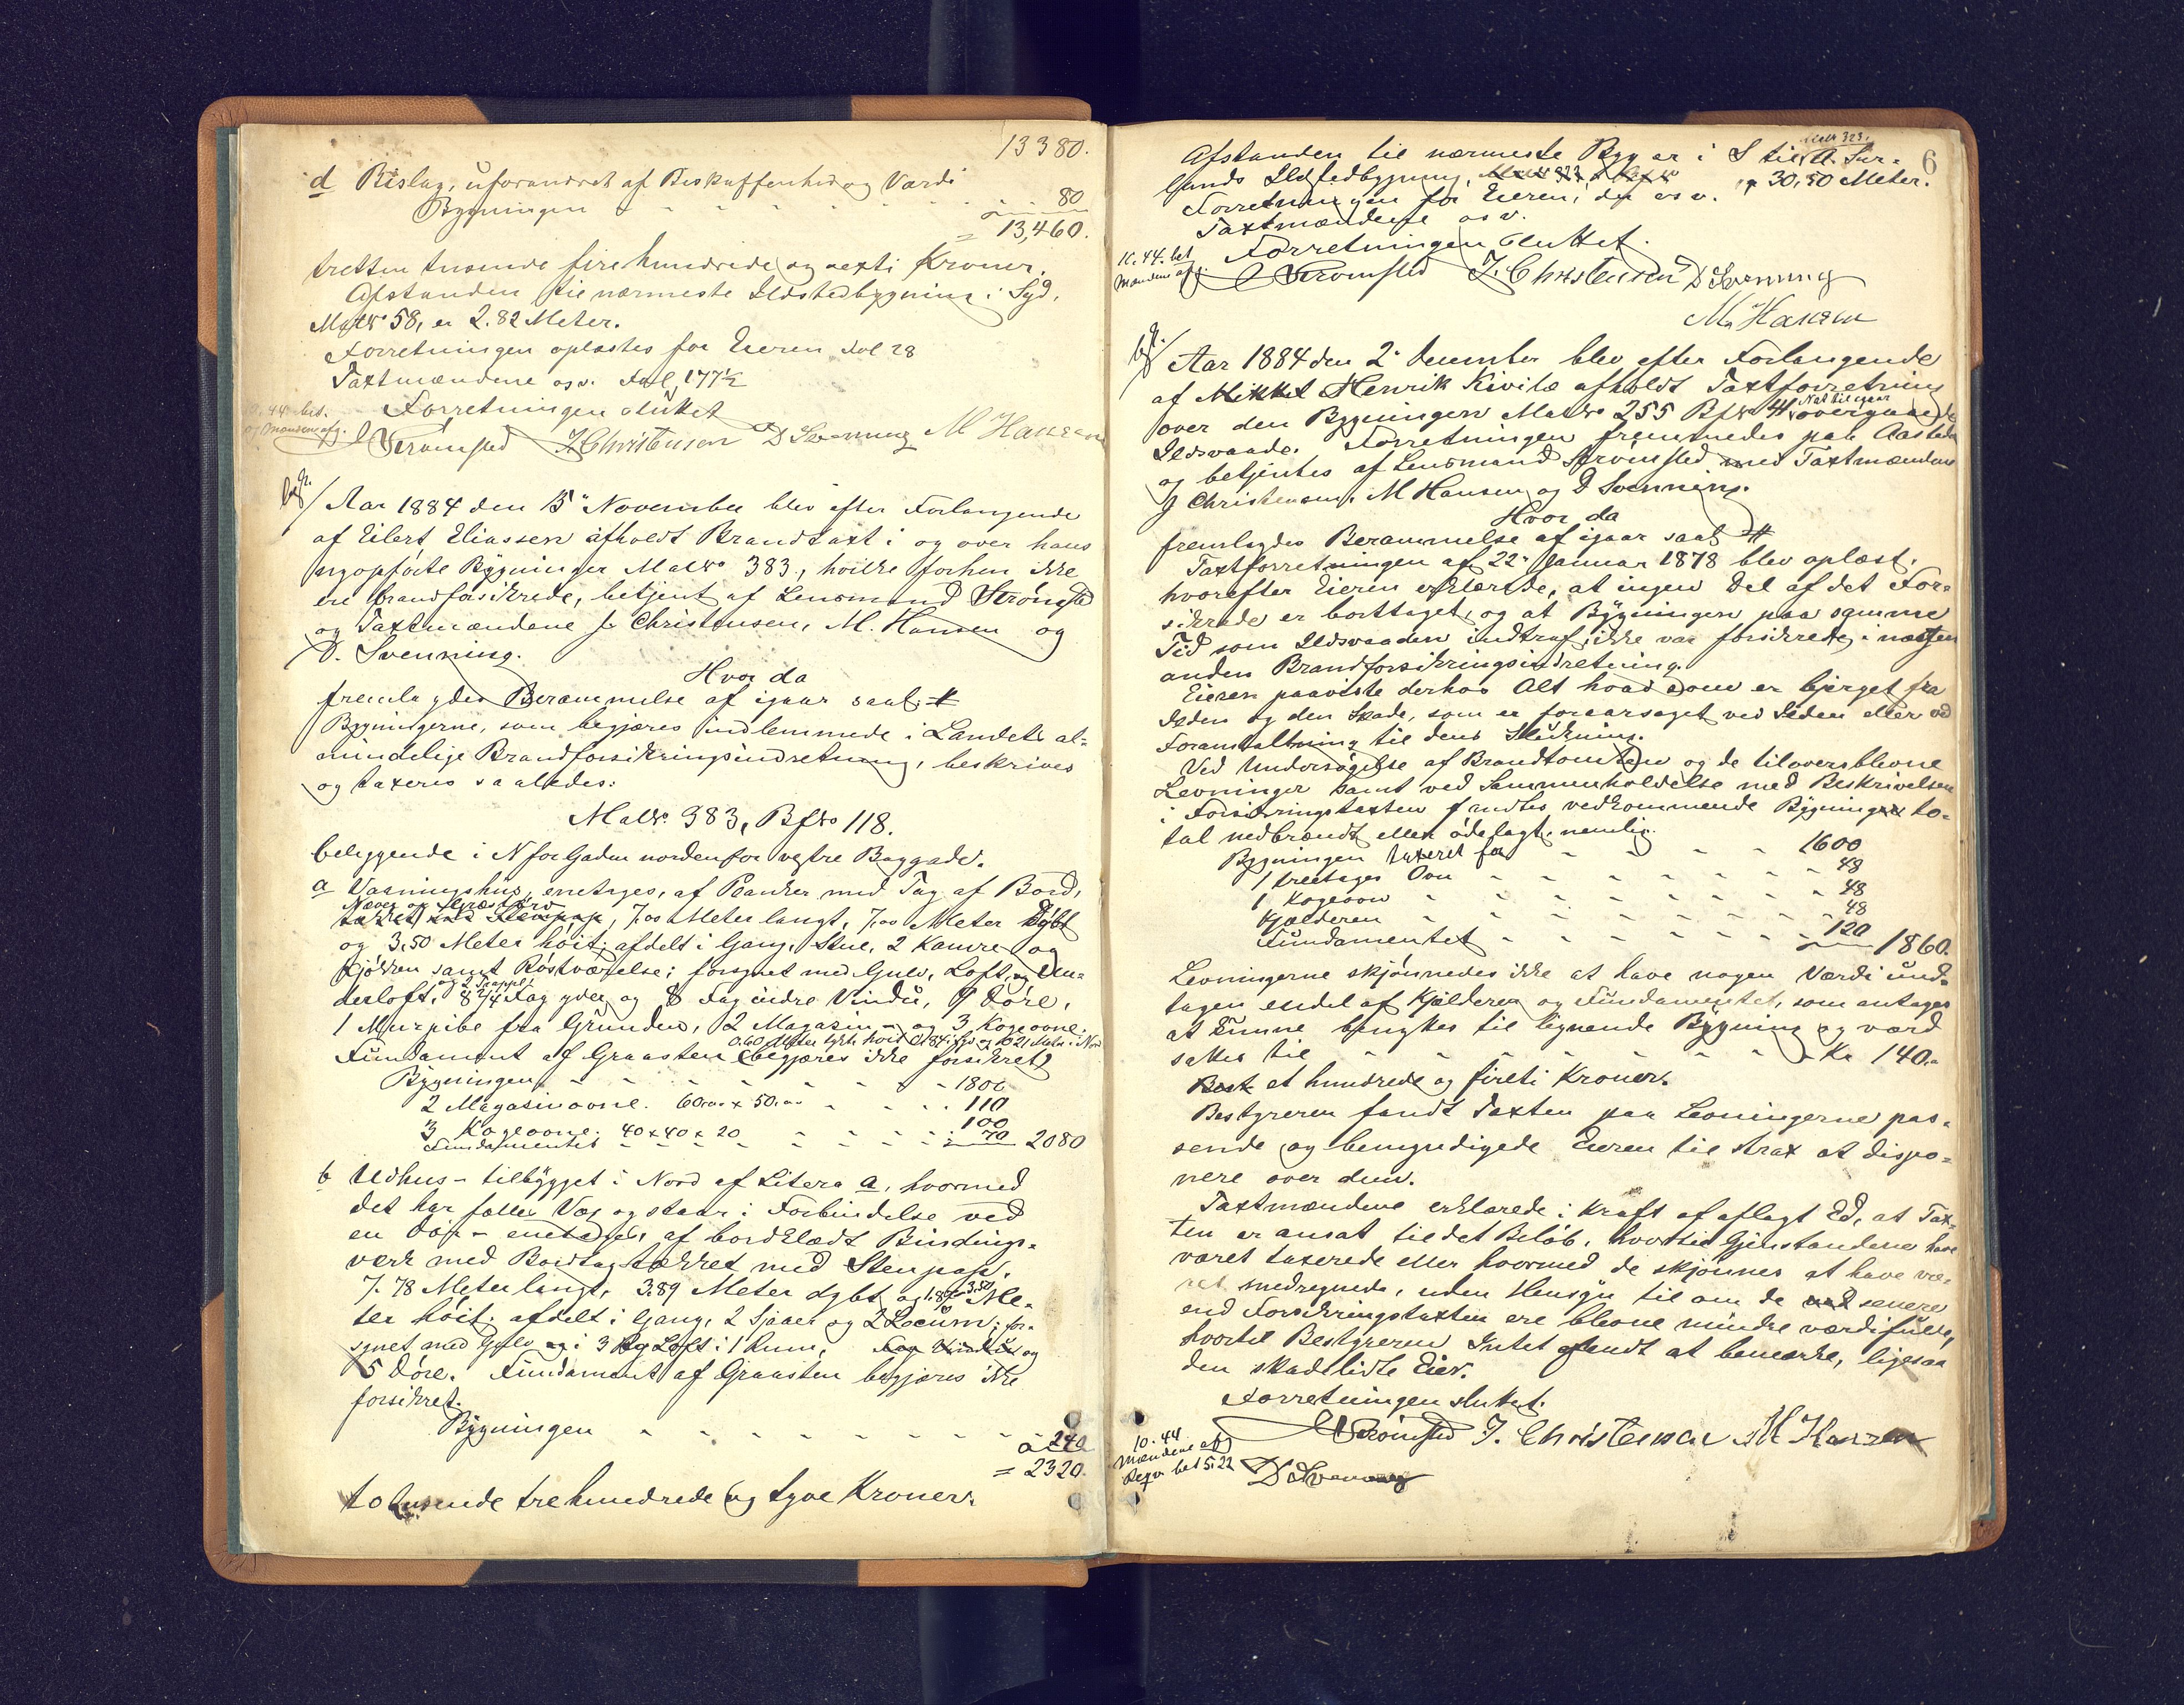 13380.
d Bislag, uforandret af Beskaffenhed og Værdi
Bygningen - - - - - - - 80
= 13,460.
tretten tusende firehundrede og sexti Kroner.
Afstanden til nærmeste Ildstedbygning i Syd,
Matr 58, er 2.82 Meter.
Forretningen oplæstes for Eieren Fol 28
Taxtmændene osv. Fol 177½
10.44 bet. Forretningen sluttet
og Mændene afg. Strømsted J Christensen D Svenning M Hansen
Aar 1884 den 15' November blev efter Forlangende
af Eilert Eliassen afholdt Brandtaxt i og over hans
nyopførte Bygninger Matr 383, hvilke forhen ikke
ere brandforsikrede, betjent af Lensmand Strømsted
og Taxtmændene J Christensen, M. Hansen og
D. Svenning.
Hvor da
fremlagdes Berammelse af igaar saal. #
Bygningerne, som begjæres indlemmede i Landets al-
mindelige Brandforsikringsindretning, beskrives
og taxeres saaledes:
Matr. 383, Bf№ 118.
beliggende i N for Gaden nordenfor vestre Baggade.
a Vaaningshus, enetages, af Planker med Tag af Bord,
Næver og Græstørv
tækket med Stenpap, 7.00 Meter langt, 7.00 Meter dybt
og 3.50 Meter høit; afdelt i Gang, Stue, 2 Kamre og
Kjøkken samt Røstværelse; forsynet med Gulv, Loft, og Un-
og 2 Trapper
derloft, 8 2/4 Fag ydre og 8 Fag indre Vindu, 9 Døre,
1 Murpibe fra Grunden, 2 Magasin- og 3 Kogeovne.
0.60 Meter tykt, høit 0.84 i Syd og 1021 Meter i Nord
Fundament af Graasten (begjæres ikke forsikret)
Bygningen - - - - - - - 1800
2 Magasinovne. 60.00 x 50.00 - - - 110
3 Kogeovne. 40 x 40 x 20 - - - - 100
Fundamentet - - - - - - - 70 2080
b Udhus - tilbygget i Nord af Litera a, hvormed
det har fælles Væg og staar i Forbindelse ved
en Dør - enetages, af bordklædt Bindings-
værk med Bordtag tækket med Stenpap.
7.78 Meter langt, 3.89 Meter dybt og 1.87 3.50 Me-
ter høit; afdelt i Gang, 2 Sjaaer og 2 Locum; for-
synet med Gulv og i 3 og Loft i 1 Rum, Fag Vindu og
5 Døre. Fundament af Graasten begjæres ikke
forsikret.
Bygningen - - - - - - - 240
= 2320.
to tusende trehundrede og tyve Kroner.
6
Matr 323,
Afstanden til nærmeste Byg er i S til A. Sur-
lands Ildstedbygning, 30,50 Meter.
Forretningen for Eieren, der osv.
Taxtmændene osv.
10.44. bet Forretningen sluttet.
Mændene afg. Strømsted J. Christensen D Svenning
M Hansen
Aar 1884 den 2' December blev efter Forlangende
af Mikkel Henrik Kivilæ afholdt Taxtforretning
Nat til igaar
over den Bygningen Matr 255 Bf№ 41 overgaaede
Ildsvaade. Forretningen fremmedes paa Aastedet
og betjentes af Lensmand Strømsted med Taxtmændene
J Christensen, M Hansen og D Svenning.
Hvor da
fremlagdes Berammelse af igaar saal. #
Taxtforretningen af 22' Januar 1878 blev oplæst,
hvorefter Eieren erklærede, at ingen Del af det For-
sikrede er borttaget, og at Bygningen paa samme
Tid som Ildsvaaden indtraf, ikke var forsikrede i nogen
anden Brandforsikringsindretning.
Eieren paaviste derhos Alt hvad som er bjerget fra
Ilden og den Skade, som er foraarsaget ved Ilden eller ved
Foranstaltning til dens Slukning.
Ved Undersøgelse af Brandtomten og de tiloversblevne
Levninger samt ved Sammenholdelse med Beskrivelsen
i Forsikringstaxten fandtes vedkommende Bygninger to-
tal nedbrændt eller ødelagt, nemlig:
Bygningen taxeret for - - - - 1600
1 treetages Ovn - - - - - - - 48
1 Kogeovn - - - - - - - 48
Kjælderen - - - - - - - 48
Fundamentet - - - - - - 120 1860.
Levningerne skjønnedes ikke at have nogen Værdi und-
tagen endel af Kjælderen og Fundamentet, som antages
at kunne benyttes til lignende Bygning og værd-
sættes til - - - - - - - Kr 140.-
et hundrede og firti Kroner.
Bestyreren fandt Taxten paa Levningerne pas-
sende og bemyndigede Eieren til strax at dispo-
nere over dem.
Taxtmændene erklærede i Kraft af aflagt Ed, at Tax-
ten er ansat til det Beløb, hvortil Gjenstandene have
været taxerede eller hvormed de skjønnes at have væ-
ret medregnede, uden Hensyn til om de senere
end Forsikringstaxten ere blevne mindre værdifulde,
hvortil Bestyreren Intet fandt at bemærke, ligesaa
den skadelidte Eier.
Forretningen sluttet.
10.44 Strømsted J. Christensen M Hansen
Mændene afg
bet 5.22 D Svenning